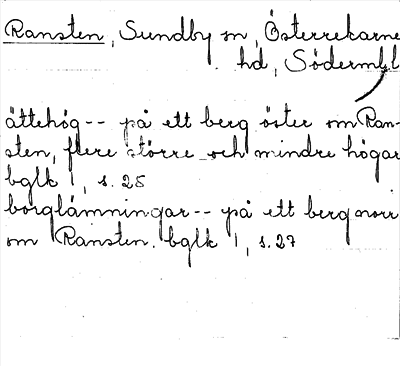 Ransten, Sundby sn, Österrekarne
hd, Södermanl
ättehög-- på ett berg öster om Ran-
sten, flere större och mindre högar
bglk 1, s. 25
borglämningar-- på ett berg norr
om Ransten. bglk 1, s. 27